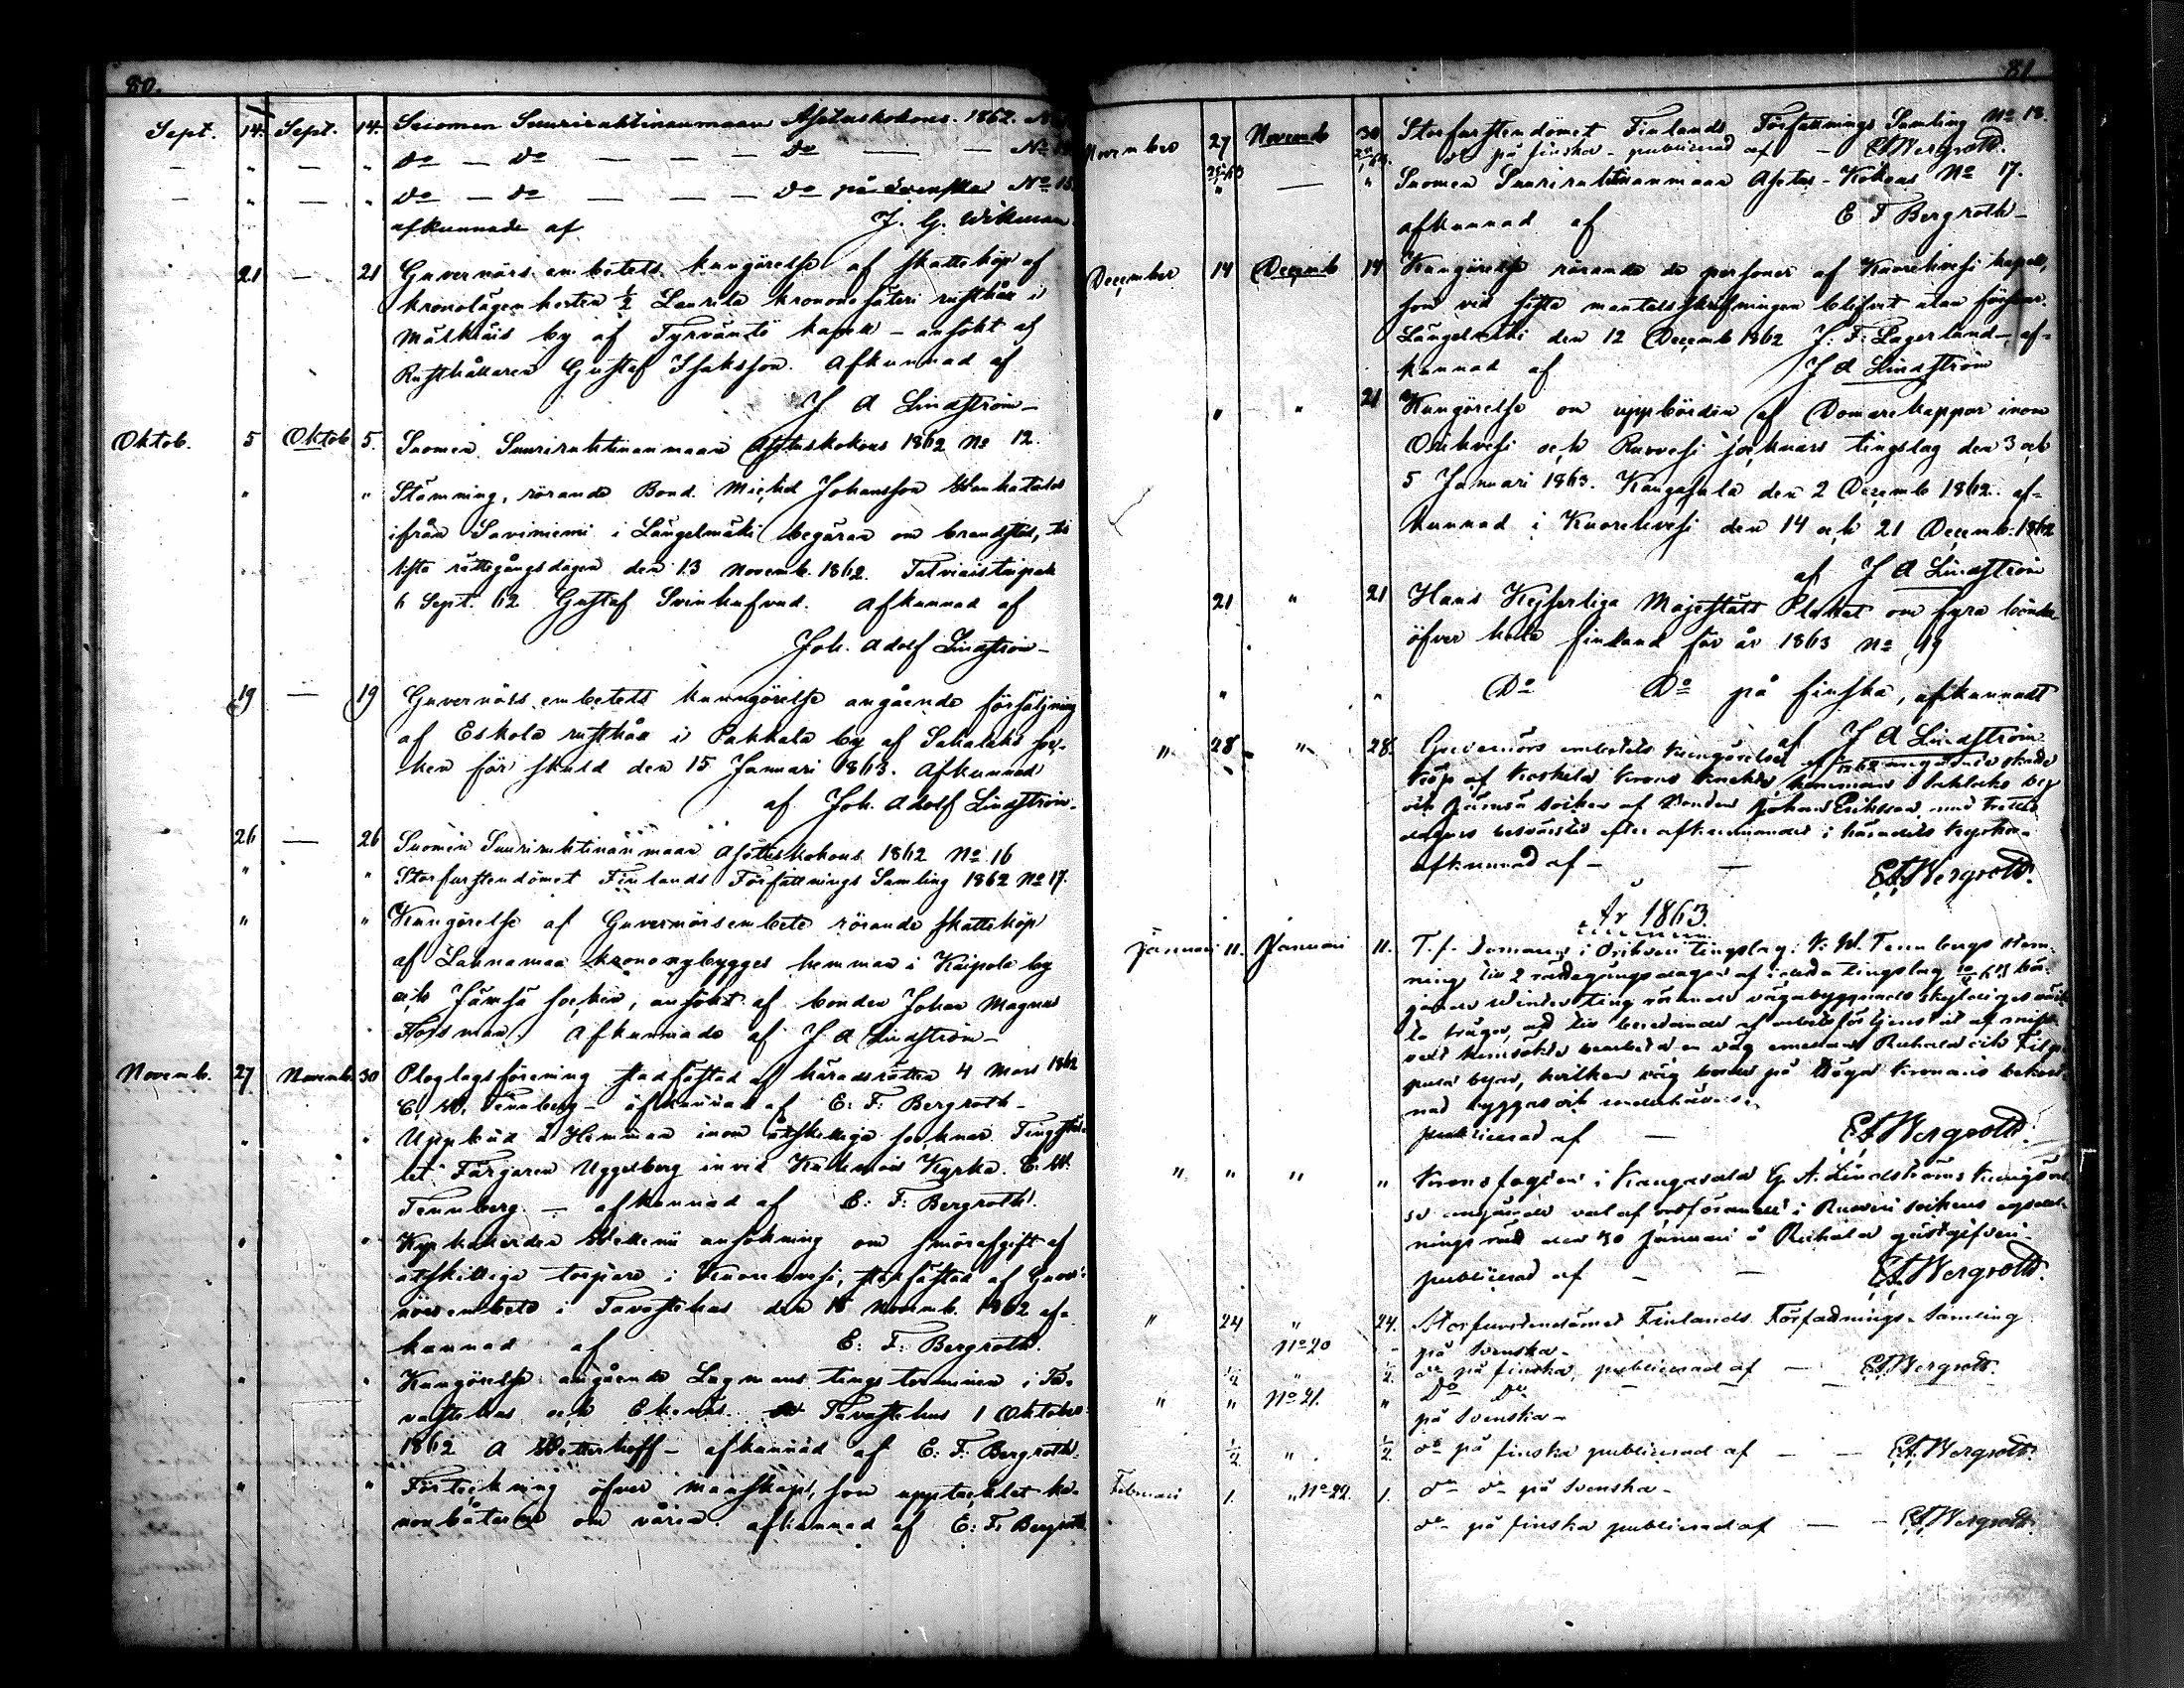 80.
Sept. 14. Sept. 14. Suomen Suuriruhtinanmaan Asetuskokous. 1862. No
— " — " do — do — — — do — — No
— " — " do — do — — — do på svenska No 15
afkunnade af J. G. Wikman
21 — 21 Guvernörs embetets kungörelse af skatteköp af
kronolägenheten ½ Laurila krono säteri rusthåll i
by af Tyrväntö kapell – ansökt af
Rusthållaren Gustaf Isaksson. Afkunnad af
J A Lindström –
Oktob. 5 Oktob 5. Suomen Suuriruhtinanmaan Asetuskokous 1862 No 12.
" " Stämning, rörande Bond. Michel Johansson
ifrån Saviniemi i Längelmäki begäran om brandstod, till
sista rättegångsdagen den 13 Novemb. 1862.
6 Sept. 62 Gustaf Svinhufvud. Afkunnad af
Joh. Adolf Lindström –
19 — 19 Guvernörs embetets kunngörelse angående försäljning
af Eskola rusthåll i Pakkala by af Sahalaks soc-
ken för skuld den 15 Januari 1863. Afkunnad
af Joh. Adolf Lindström –
26 — 26 Suomen Suuriruhtinanmaan Asetuskokous 1862 No 16
" " Storfurstendömet Finlands Författnings Samling 1862 No 17.
" " Kungörelse af Guvernörsembete rörande skatteköp
af Lannamaa krononybygges hemman i Kaipola by
och Jämsä socken, ansökt af bonden Johan Magnus
Forsman. Afkunnade af J A Lindström –
Novemb. 27 Novemb. 30 Ploglagsförening stadfästad af häradsrätten 4 Mars 1862
C. W. Tennberg – afkunnad af E: F: Bergroth –
" " Uppbud å Hemman inom åtskilliga socknar. Tingsstäl-
let Färgaren Uggelberg invid Kuhmois Kyrka. C. W.
Tennberg. — afkunnad af E: F: Bergroth.
" " Kyrkoherden ansökning om smörafgift af
åtskilliga torpare i Kuorehvesi, stadfästad af Guver-
nörsembete i Tavastehus den 18 Novemb. 1862 af-
kunnad af E: F: Bergroth.
" " Kungörelse angående Lagmans tings terminen i Ta-
vastehus och Ekenäs. Tavastehus 1 Oktober
1862 A Wetterhoff – afkunnad af E: F: Bergroth.
" " Förteckning öfver manskap, som upptacklet ka-
nonbåtarne om våren. afkunnad af E: F: Bergroth
81
November 27 Novemb 30 Storfurstendömet Finlands Författnings Samling No 18.
25/1 63 25/1 63. do på finska – publicerad af – EFBergroth.
" — " Suomen Suuriruhtinanmaan Asetus-Kokous No 17.
afkunnad af E F Bergroth –
December 14 Decemb 14 Kungörelse rörande de personer af Kuorehvesi kapell,
som vid sista mantalsskrifningen blifvit utan försvar.
Längelmäki den 12 Decemb 1862 J: F: Lagerlund –, af-
kunnad af J A Lindström
" " 21 Kungörelse om uppbörden af Domarekappor inom
Orihvesi och Ruovesi socknars tingslag den 3 och
5 Januari 1863. Kangasala den 2 Decemb 1862. af-
kunnad i Kuorehvesi den 14 och 21 Decemb. 1862
af J A Lindström
21 " 21 Hans Kejserliga Majestäts Plakat om fyra bönda-
öfver hela Finland för år 1863 No 19
" " Do Do på finska, afkunnadt
af J A Lindström
" 28 " 28. Guvernörs embetets kungörelse af angående skatte
köp af Koskela krono hemman i by
och Jämsä socken af Bonden Johan Eriksson, med trettio
dagars besvärstid efter afkunnandet i häradets kyrkor.
afkunnad af – — EFBergroth.
År 1863.
Januari 11. Januari 11. T. f. Domaren i Orihvesi tingslag: K. W. Tennbergs stäm-
ning till 2 rättegångsdagen af i detta tingslag bör-
jande Winter ting rörande vägabyggnads skyldiges
publicerad af — EFBergroth.
" " " " Kronofogden i Kangasala G. A. Lindströms kungörel-
se angående val af ordförande i Ruovesi sockens
den 30 Januari å Ruhala gästgifveri –
publicerad af – — EFBergroth.
" 24 " 24. Storfurstendömet Finlands Författnings-Samling
No 20 på Svenska –
½ " ½. do på finska, publicerad af — EFBergroth.
" " No 21. " Do do — — —
på Svenska –
½ " ½ do på finska publicerad af — — EFBergroth.
Februari 1. " No 22. 1. do do på Svenska –
do på finska publicerad af — — EFBergroth.